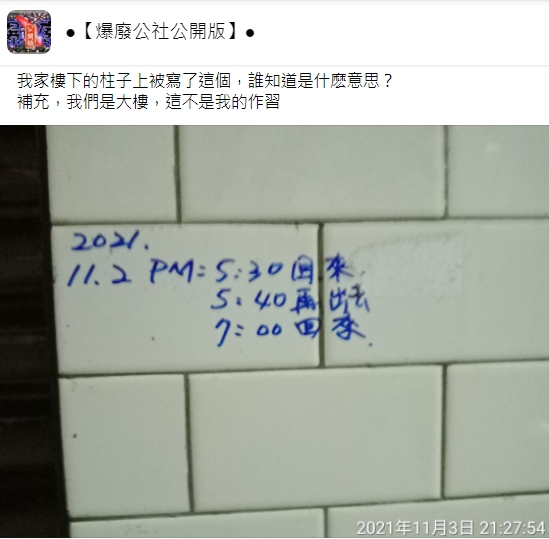 ●【爆廢公社公開版】●
我家樓下的柱子上被寫了這個，誰知道是什麽意思？
補充，我們是大樓，這不是我的作習
2021.
11.2 PM: 5:30 回來.
5:40 再出去
7:00 回來.
2021年11月3日 21:27:54